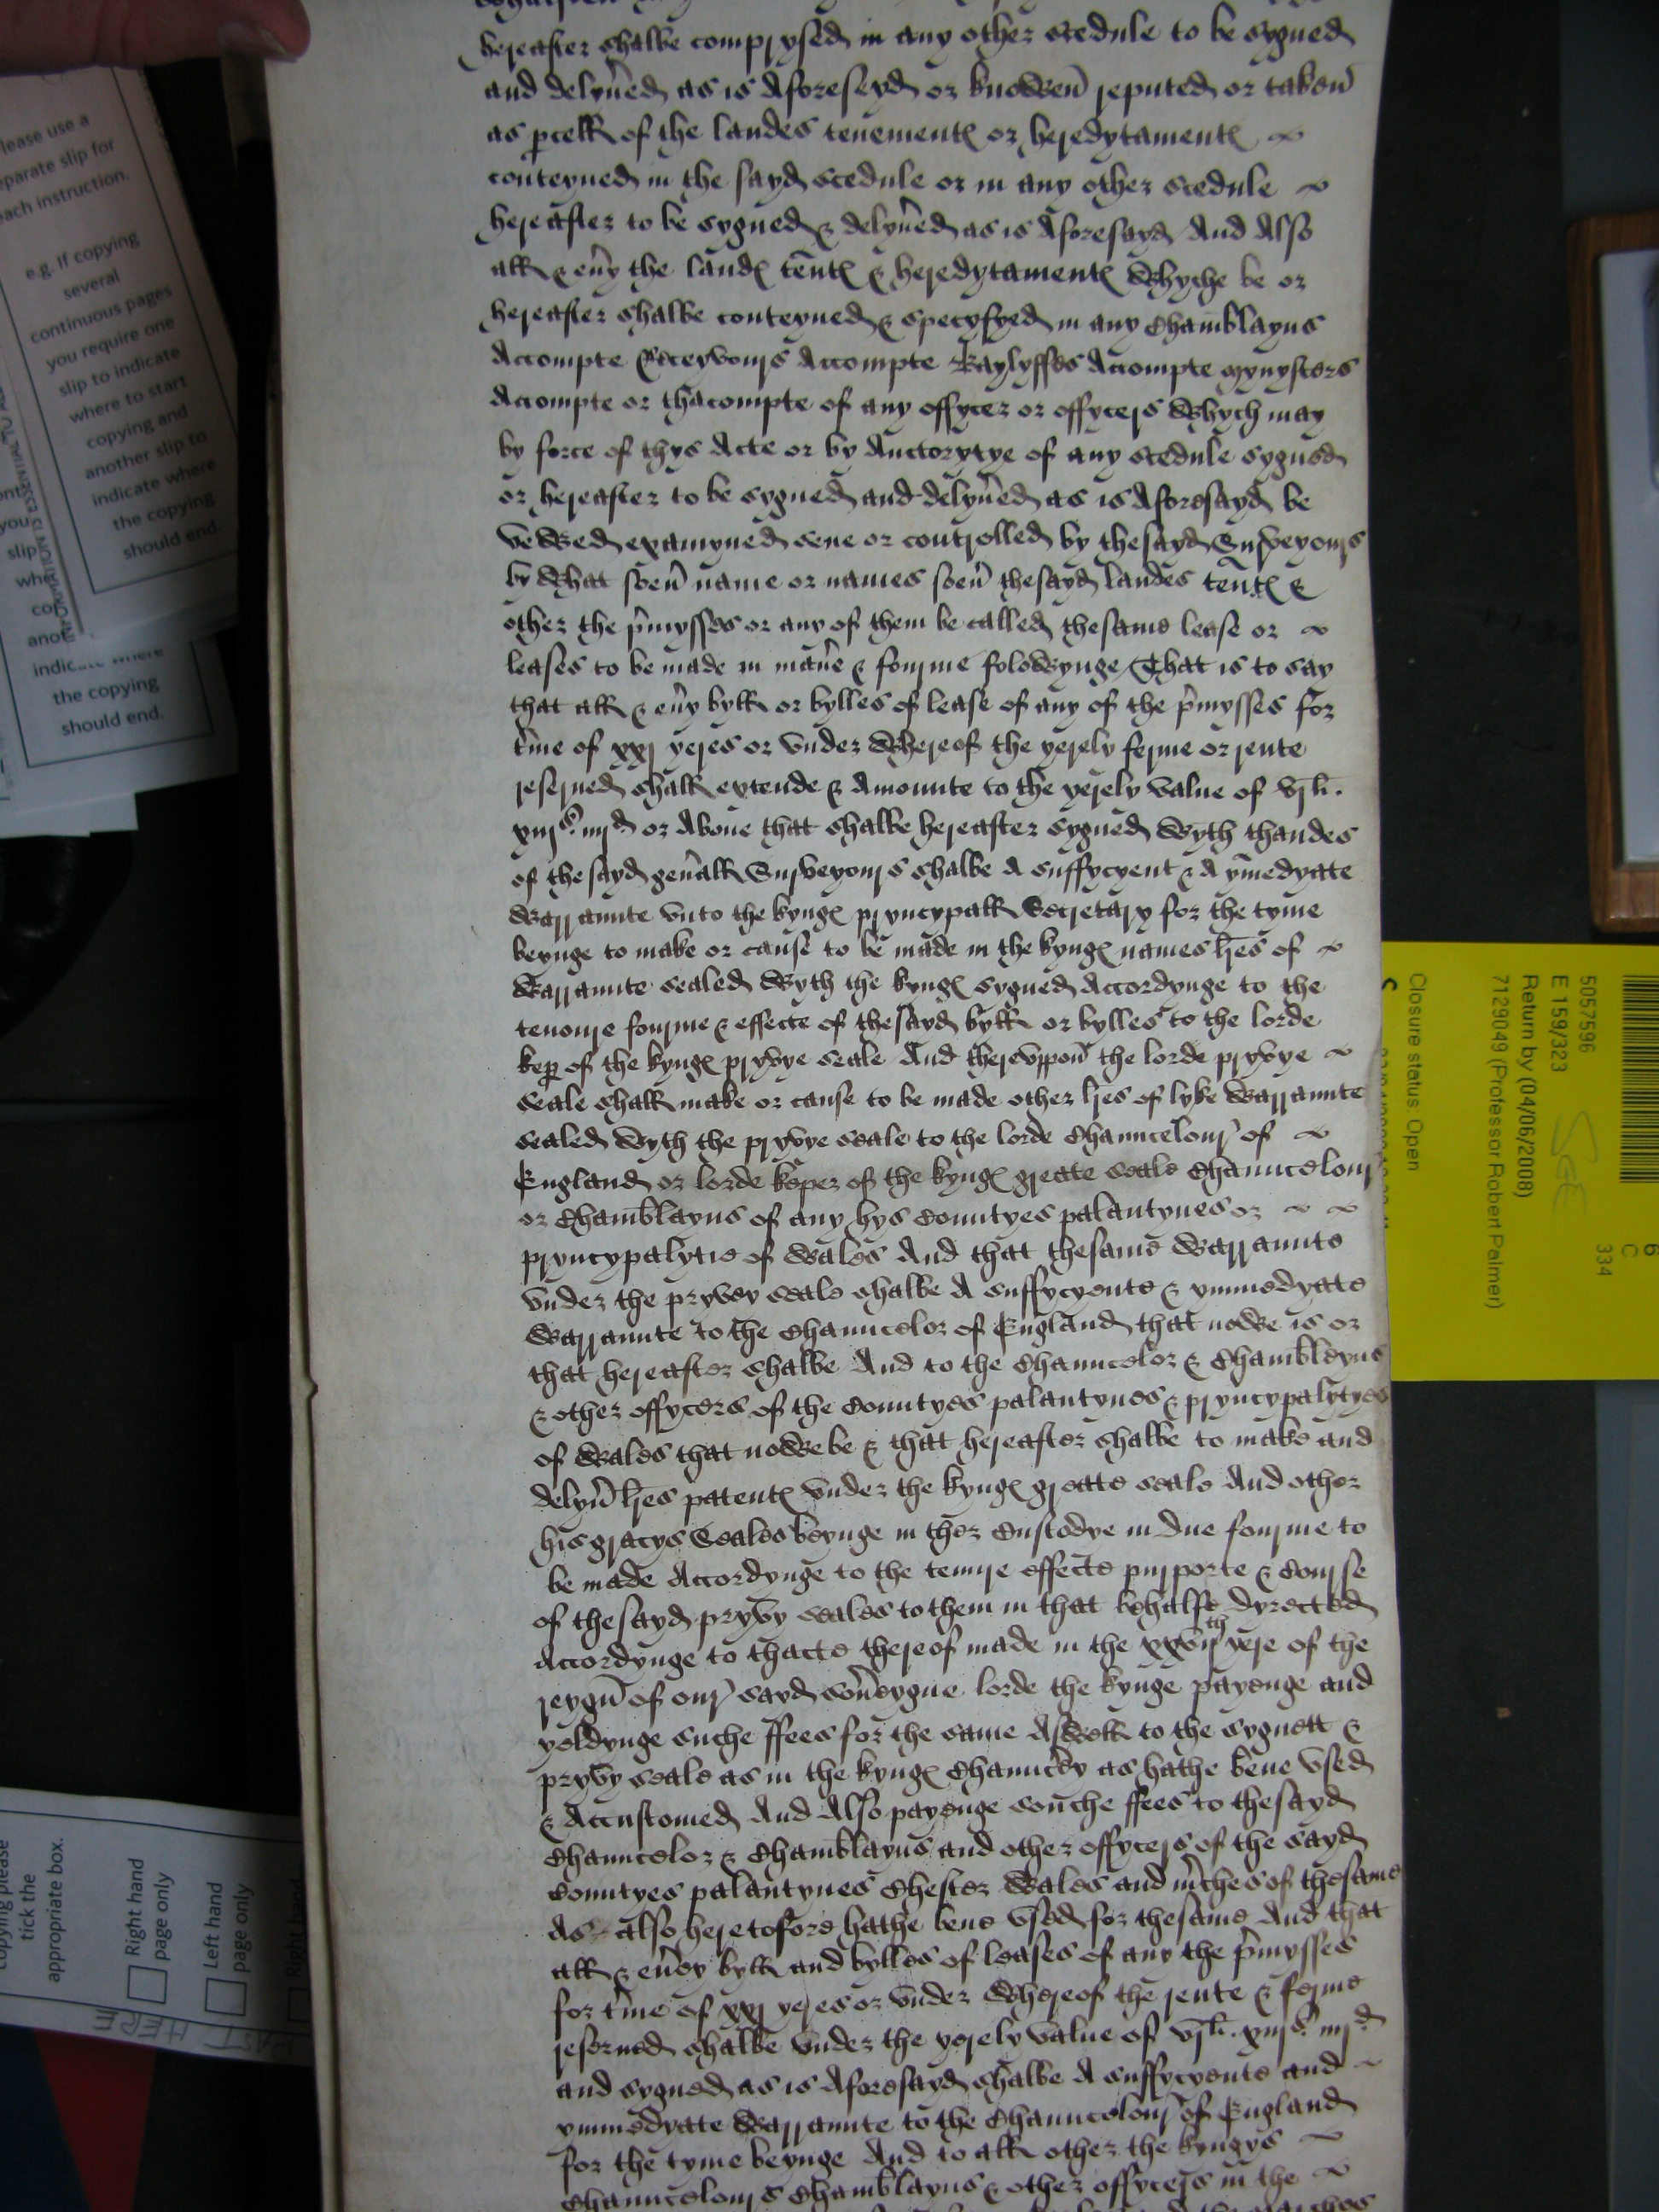 hereafter shalbe comprysed in any other scedule to be sygned
and delyu'ed as is Aforeseyd or knowen reputed or taken
as pcell of the landes tenement℮ or heredytament℮
conteyned in the sayd scedule or in any other scedule
hereafter to be sygned & delyu'ed as is Aforesayd And Also
all & eu'y the land℮ ten't℮ & heredytament℮ Whyche be or
hereafter shalbe conteyned & specyfyed in any Chamb'layns
Accompte Receyvours Accompte Baylyffes Accompte mynysters
Accompte or thacompte of any offycer or offycers Whych may
by force of thys Acte or by Auctorytye of any scedule sygned
or hereafter to be sygned and delyu'ed as is Aforesayd be
vewed examyned sene or controlled by thesayd Surveyours
by What soeu' name or names soeu' thesayd landes tent℮ &
other the p'mysses or any of them be called thesame lease or
leases to be made in man'e & fourme folowynge That is to say
that all & eu'y byll or bylles of lease of any of the p'mysses for
t'me of xxj yeres or vnder Whereof the yerely ferme or rente
reserued shall extende & Amounte to the yerely value of vjli.
xiijs. iiijd or Aboue that shalbe hereafter sygned Wyth thandes
of thesayd gen'all Surveyours shalbe A suffycyent & A ym'edyate
Warraunte vnto the kyng℮ pryncypall Secretary for the tyme
beynge to make or cause to be made in the kyng℮ names l'res of
Warraunte sealed Wyth the kyng℮ sygned Accordynge to the
tenoure fourme & effecte of thesayd byll or bylles to the lorde
kep of the kyng℮ pryvye seale And therevppon the lorde pryvye
seale shall make or cause to be made other l'res of lyke Warraunte
sealed Wyth the pryvye seale to the lorde Chauncelour of
England or lorde keper of the kyng℮ greate seale Chauncelour
or Chamb'layns of any hys Countyes palantynes or
pryncypalytie of Wales And that thesame Warraunte
vnder the pryvey seale shalbe A suffycyente & ymmedyate
Warraunte to the Chauncelor of England that nowe is or
that hereafter shalbe And to the Chauncelor & Chamb'leyns
& other offycers of the Countyes palantynes & pryncypalytyes
of Wales that nowe be & that hereafter shalbe to make and
delyu' l'res patent℮ vnder the kyng℮ greate seale And other
his gracys Seales beynge in ther Custodye in due fourme to
be made Accordynge to the tenure effecte purporte & Course
of thesayd pryvy seales to them in that behalfe dyrected
Accordynge to thacte thereof made in the xxvijth yere of the
reygn' of our sayd sou'eygne lorde the kynge payenge and
yeldynge suche ffees for the same Aswell to the sygnett &
pryvy seale as in the kyng℮ Chaunc'ey as hathe bene vsed
& Accustomed And Also payenge souche ffees to thesayd
Chauncelor & Chamb'layns and other offycers of the sayd
Countyes palantynes Chester Wales and m'ches of thesame
As also heretofore hathe bene vsed for thesame And that
all & eu'ey byll and bylles of leases of any the p'mysses
for t'me of xxj yeres or vnder Whereof the rente & ferme
reserued shalbe vnder the yerely value of vjli. xiijs. iiijd
and sygned as is Aforesayd shalbe A suffycyente and
ymmedyate Warraunte to the Chauncelour of England
for the tyme beynge And to all other the kyngys
Chauncelours Chamb'layns & other offycers in the
lease use a
eparate slip for
each instruction.
e.g. If copying
several
continuous pages
you require one
slip to indicate
where to start
copying and
another slip to
indicate where
the copying
should end.
indicate where
the copying
should end.
copying please
tick the
appropriate box.
Right hand
page only
Left hand
page only
Right hand
5057596
E 159/323
Return by (04/06/2008)
7129049 (Professor Robert Palmer)
Closure status: Open
334